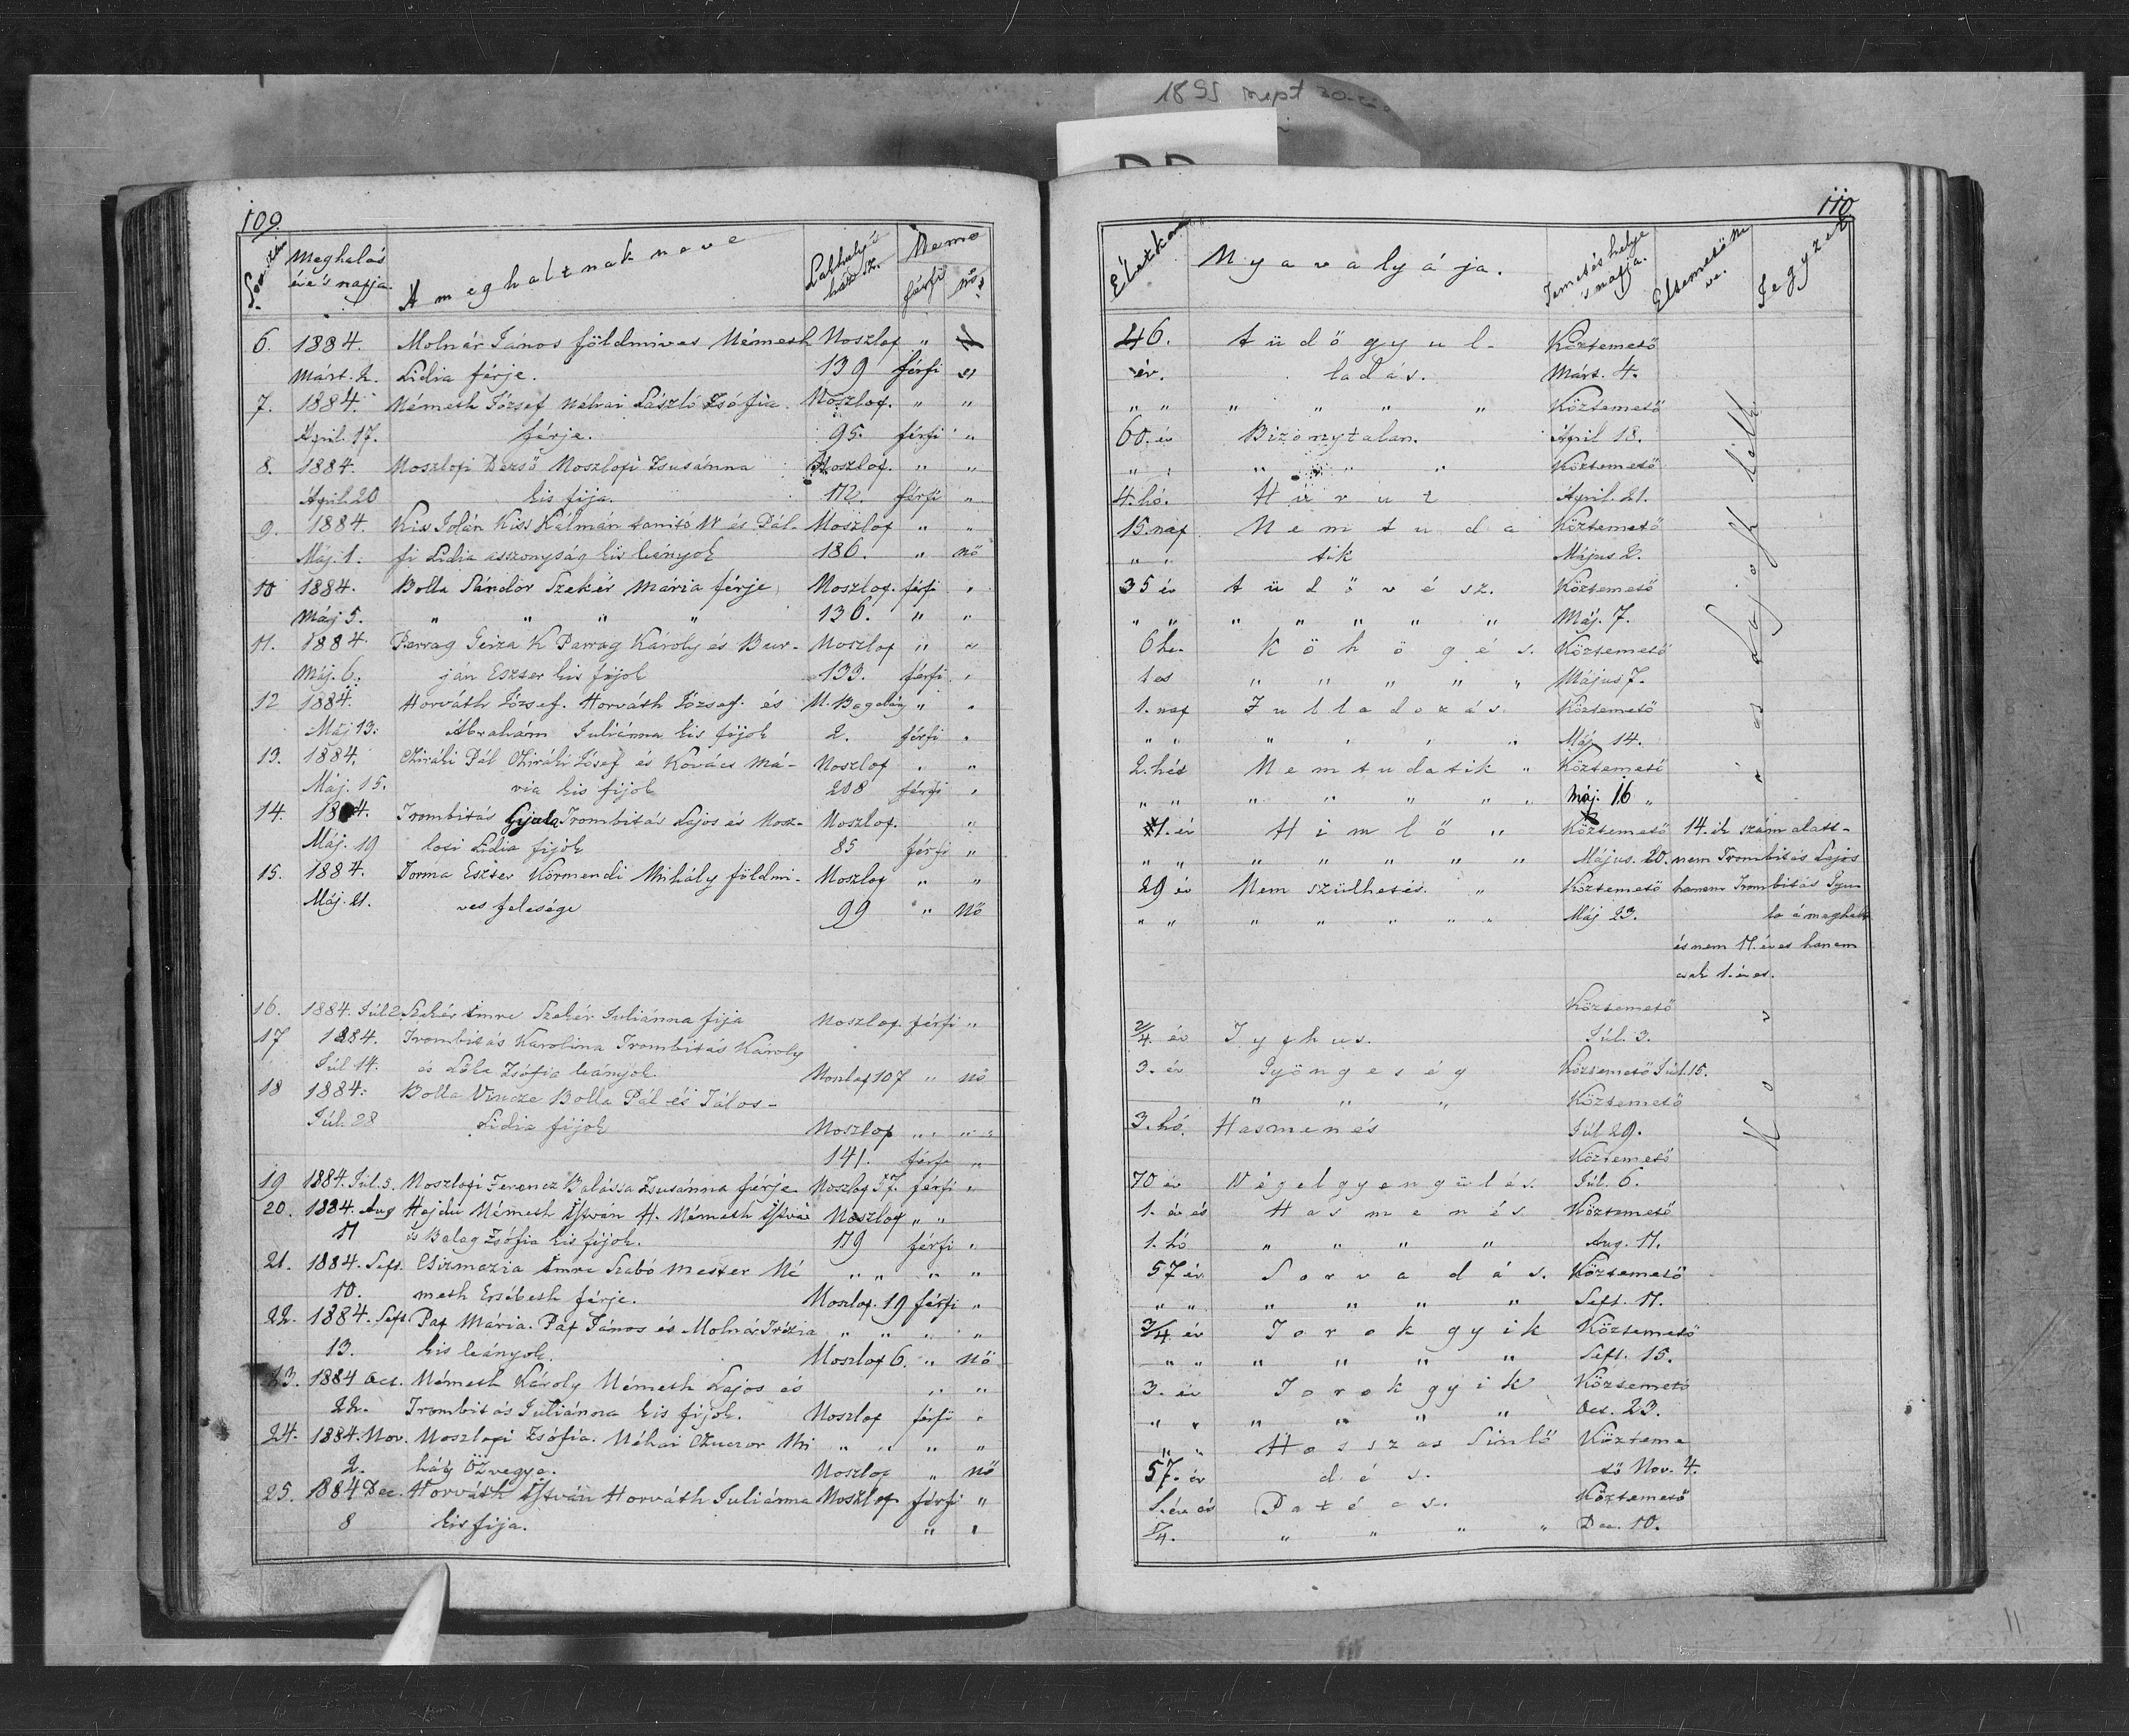 1895 sept 30-
109.
Meghalás
éve's napja.
A meghaltnak neve
Lakhelye
ház sz.
Neme
férfi
nő
6. 1884. Molnár János földmives Németh Noszlop "
Márt. 2. Lidia férje. 139 férfi "
7. 1884. Németh József néhai László Zsófia Noszlop. " "
April. 17. férje. 95. férfi "
8. 1884. Noszlopi Dezső Noszlopi Zsusánna Noszlop. " "
April. 20 kis fija. 172 férfi "
9. 1884. Kiss Jolán Kiss Kálmán tanitó úr és Pál- Noszlop " "
Máj. 1. fi Lidia asszonyság kis leányok 186. " nő
10 1884. Bolla Sándor Szekér Mária férje Noszlop. férfi "
Máj 5. " " " " 136. " "
11. 1884 Parrag Geiza K Parrag Károly és Bur- Noszlop " "
Máj. 6. ján Eszter kis fijok 133. férfi "
12 1884. Horváth József. Horváth József és N. Bogdány " "
Máj 13. Ábrahám Juliánna kis fijok 2. férfi "
13. 1884. Csiráki Pál Csiráki Jósef és Kovács Má- Noszlop " "
Máj. 15. ria kis fijok 208 férfi "
14. 1884. Trombitás Gyula Trombitás Lajos és Nosz- Noszlop. "
Máj. 19 lopi Lidia fijok 85 férfi "
15. 1884. Torma Eszter Körmendi Mihály földmi- Noszlop " "
Máj. 21. ves felesége 99 " nő
16. 1884. Júl 2. Szekér Imre Szekér Juliánna fija Noszlop. férfi "
17 1884. Trombitás Karolina Trombitás Károly
Júl 14. és Zsófia leányok Noszlop 107 " nő
18 1884. Bolla Vincze Bolla Pál és Tálos-
Júl. 28 Lidia fijok Noszlop " " " "
141. férfi "
19 1884. Júl. 5. Noszlopi Ferencz Balássa Zsusánna férje Noszlop 57. férfi "
20. 1884. Aug Hajdu Németh István H. Németh István Noszlop " "
11 és Balag Zsófia kis fijok. 179 férfi "
21. 1884. Sept. Csizmazia Imre Szabó mester Né " " " "
10. meth Ersébeth férje. Noszlop. 19 férfi "
22. 1884. Sept. Pap Mária. Pap János és Molnár Trézia " " " "
13. kis leányok. Noszlop 6. " nő
23. 1884 Oct. Németh Károly Németh Lajos és " "
22. Trombitás Juliánna kis fijok. Noszlop férfi "
24. 1884. Nov. Noszlopi Zsófia. Néhai Czuczor Mi " " " "
2. hály özvegye. Noszlop " nő
25. 1884 Dec. Horváth István Horváth Juliánna Noszlop férfi "
8 kis fija. " "
110.
Életkora
Nyavalyája.
Temetés helye
's napja.
Eltemető ne
ve.
Jegyzet
46. tüdőgyul- Köztemető
év. ladás. Márt. 4.
" " " " " " Köztemető
60. év Bizonytalan. April 18.
" " " " " Köztemető
4. hó. Hurut April. 21.
15. nap Nem tuda Köztemető
" " tik Május 2.
35 év tüdővész. Köztemető
" " " " " " " Máj. 7.
6 he- Köhögés. Köztemető
tes " " " " " Május 7.
1. nap Fulladozás Köztemető
" " " " " " Máj 14.
2. hét Nem tudatik " Köztemető
" " " " " " " Máj. 16 "
1. év Himlő " Köztemető 14. ik szám alatt-
" " " " " " " Május. 20. nem Trombitás Lajos
29 év Nem szülhetés. " Köztemető hanem Trombitás Gyu-
" " " " " " " Máj 23. la a meghalt
és nem 11. éves hanem
csak 1. éves.
Köztemető
2/4. év Typhus. Júl. 3.
3. év Gyöngeség Köztemető Júl. 15.
" " " Köztemető
3. hó. Hasmenés Júl 29.
Köztemető
70 év Végelgyengülés. Júl. 6.
1. év és Hasmenés Köztemető
1. hó " " " " Aug. 11.
57 év Sorvadás. Köztemető
" " " " " " Sept. 11.
3/4 év Torokgyik Köztemető
" " " " " " Sept. 15.
3. év Torokgyik Köztemető
" " " " " " Oct. 23.
" " Hosszas Sinlő Közteme
57. év dés. tő Nov. 4.
1. év és Patécs. Köztemető
1/4. " " " " Dec. 10.
Lajos